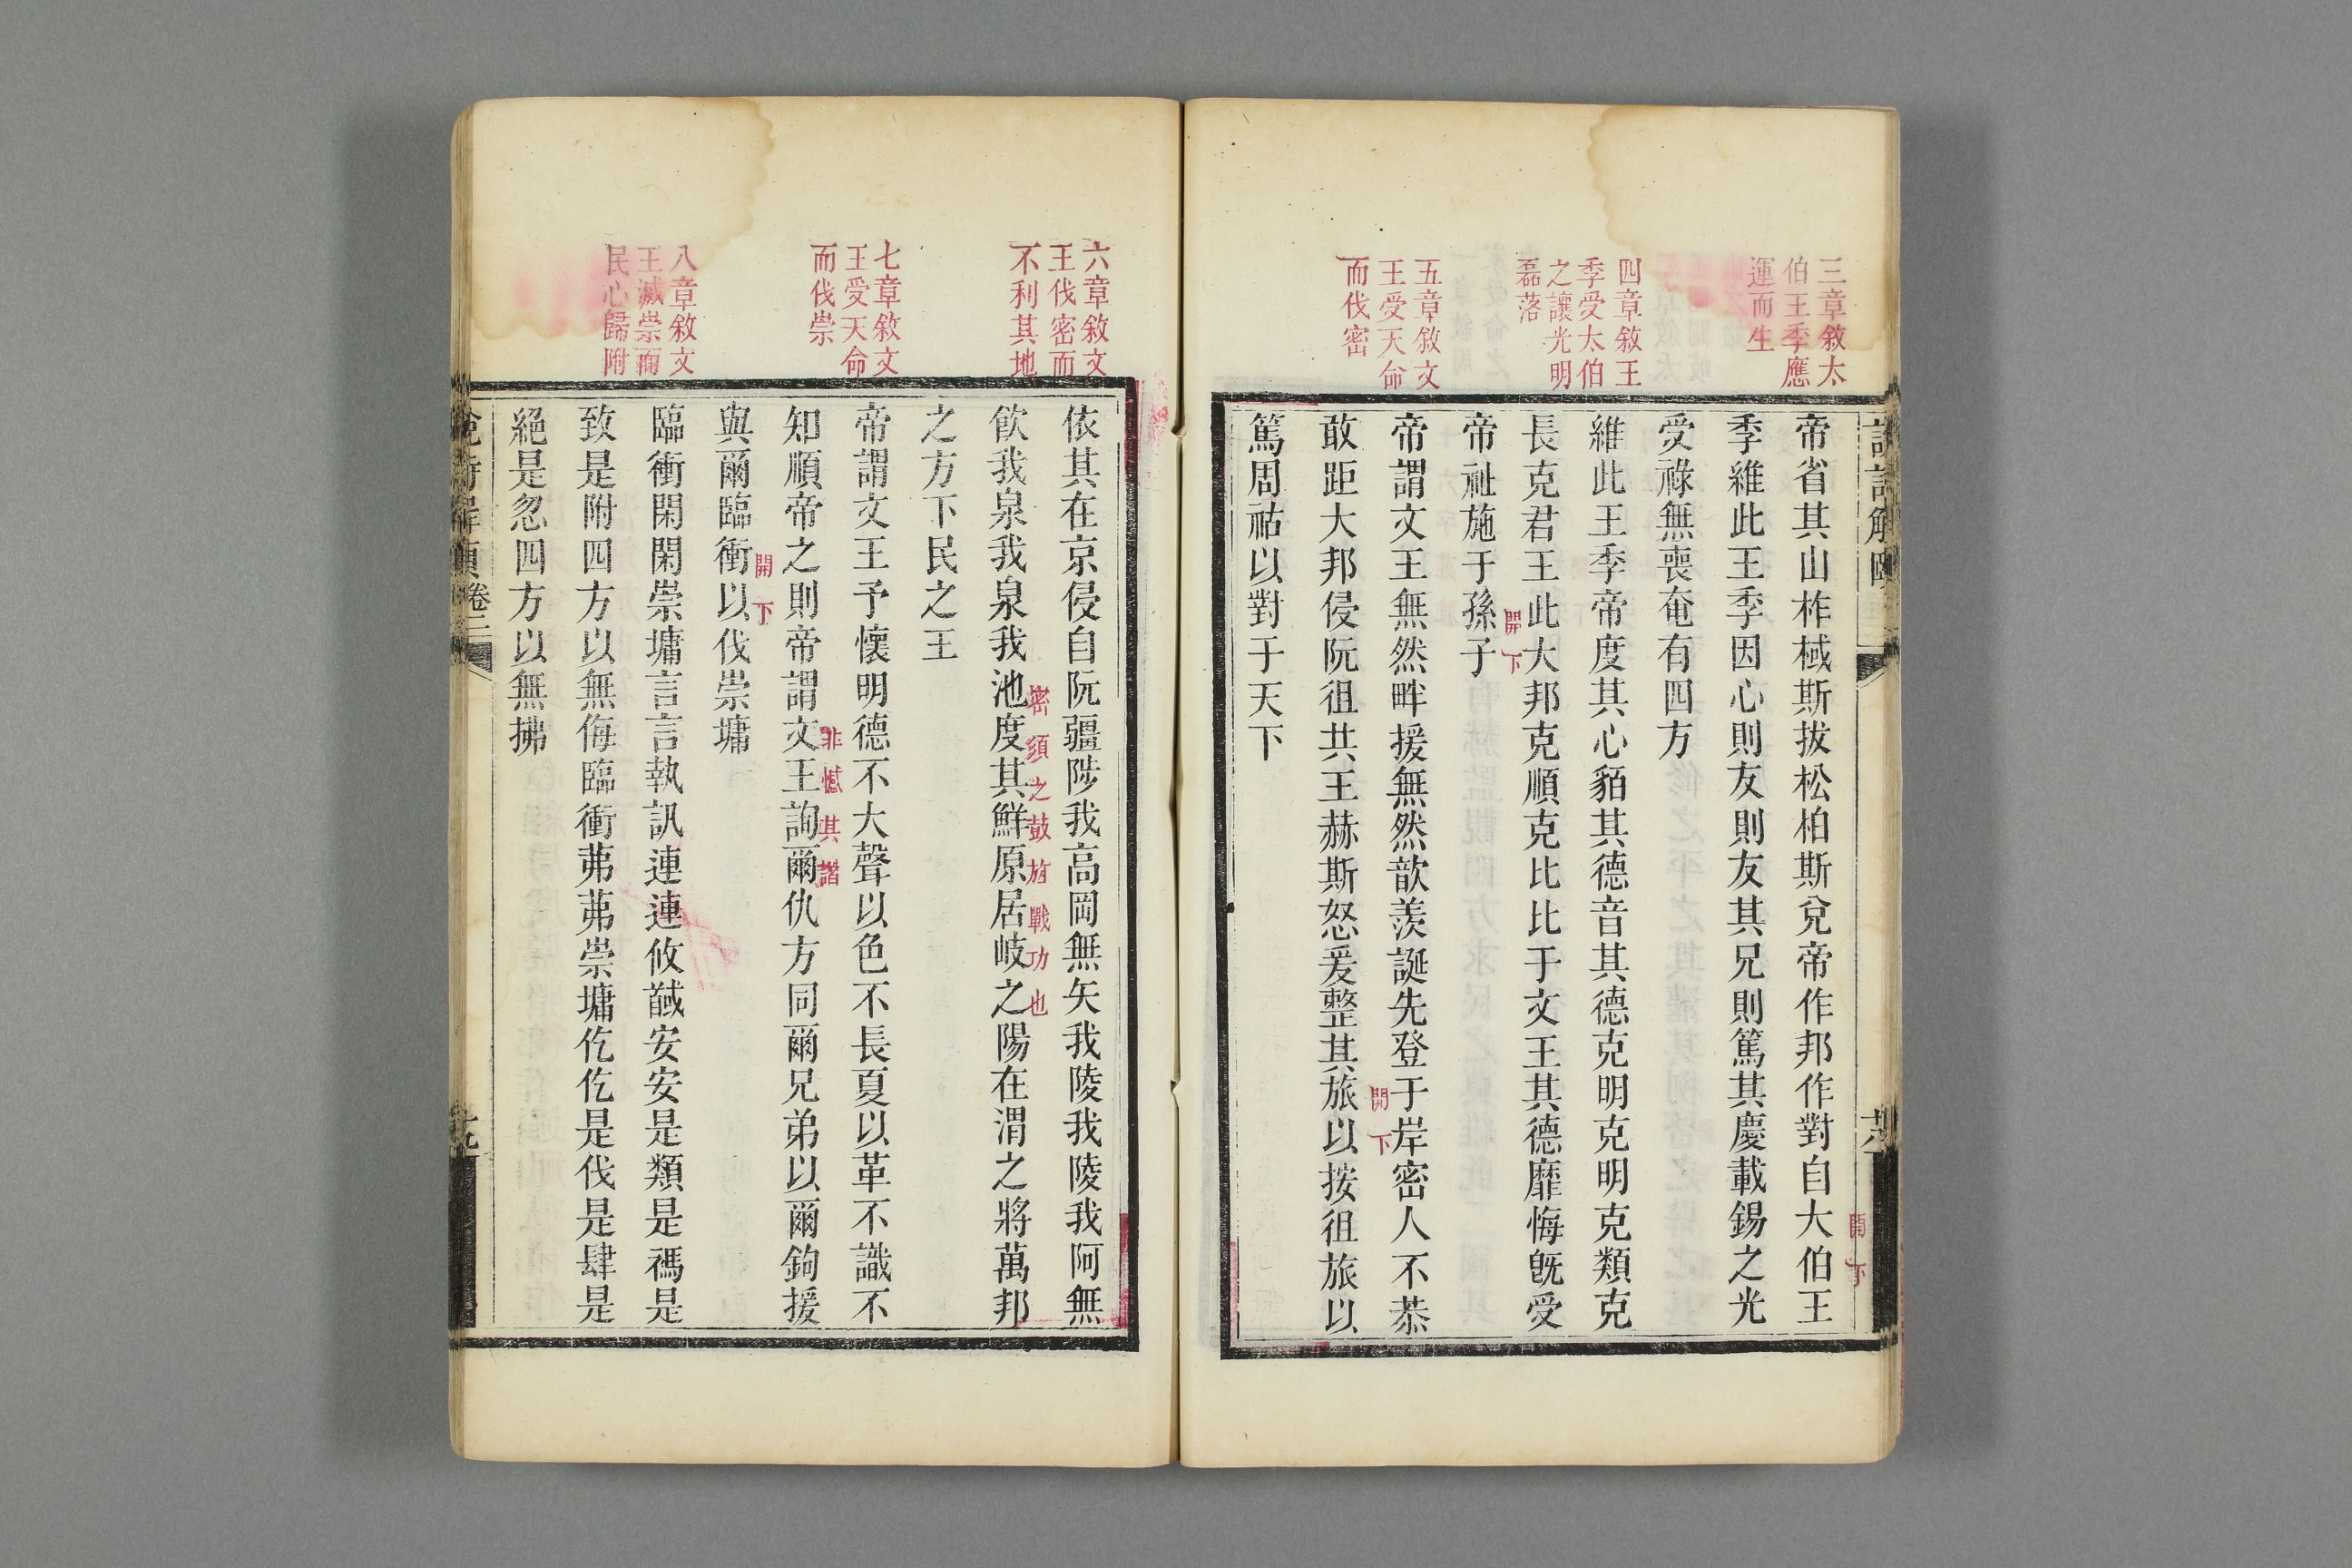 三章敘太
伯王季應
運而生
四章敘王
季受太伯
之讓光明
磊落
五章敘文
王受天命
而伐密
帝省其山柞棫斯拔松柏斯兌帝作邦作對自大伯王
開下
季維此王季因心則友則友其兄則篤其慶載錫之光
受祿無喪奄有四方
維此王季帝度其心貊其德音其德克明克明克類克
長克君王此大邦克順克比比于文王其德靡悔既受
開下
帝祉施于孫子
帝謂文王無然畔援無然歆羨誕先登于岸密人不恭
開下
敢距大邦侵阮徂共王赫斯怒爰整其旅以按徂旅以
篤周祜以對于天下
六章敘文
王伐密而
不利其地
七章敘文
王受天命
而伐崇
八章敘文
王滅崇而
民心歸附
依其在京侵自阮疆陟我高岡無矢我陵我陵我阿無
飲我泉我泉我池度其鮮原居岐之陽在渭之將萬邦
密須之鼓旌戰功也
之方下民之王
帝謂文王予懷明德不大聲以色不長夏以革不識不
知順帝之則帝謂文王詢爾仇方同爾兄弟以爾鉤援
非憾其譖
與爾臨衝以伐崇墉
開下
臨衝閑閑崇墉言言執訊連連攸馘安安是類是禡是
致是附四方以無侮臨衝茀茀崇墉仡仡是伐是肆是
絕是忽四方以無拂
卷三
十九